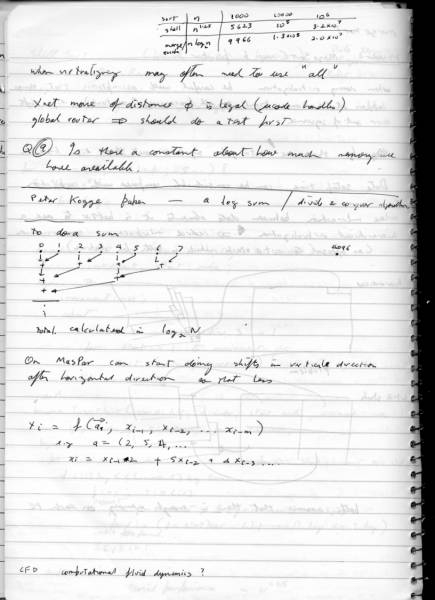 sort n 1000 10000 10⁶
shell n^1.25 5623 10⁵ 3.2x10⁷
merge/ n log₂n 9966 1.3x10⁵ 2.0x10⁷
when virtualizing may often need to use "all"
Xnet move of distance φ is legal (ucode handles)
global router ⇒ should do a test first
Q (a) Is there a constant about how much memory we
have available
Peter Kogge paper — a log sum / divide & conquer algorithm
To do a sum
0 1 2 3 4 5 6 7
4096
total calculated in log₂ N
On MasPar can start doing shifts in vertical direction
after horizontal direction
xᵢ = f(aᵢ, xᵢ₋₁, xᵢ₋₂, ... xᵢ₋ₘ)
e.g. a = (2, 5, 4, ...
xᵢ = xᵢ₋₁2 + 5xᵢ₋₂ + 4xᵢ₋₃ ...
CFD computational fluid dynamics ?